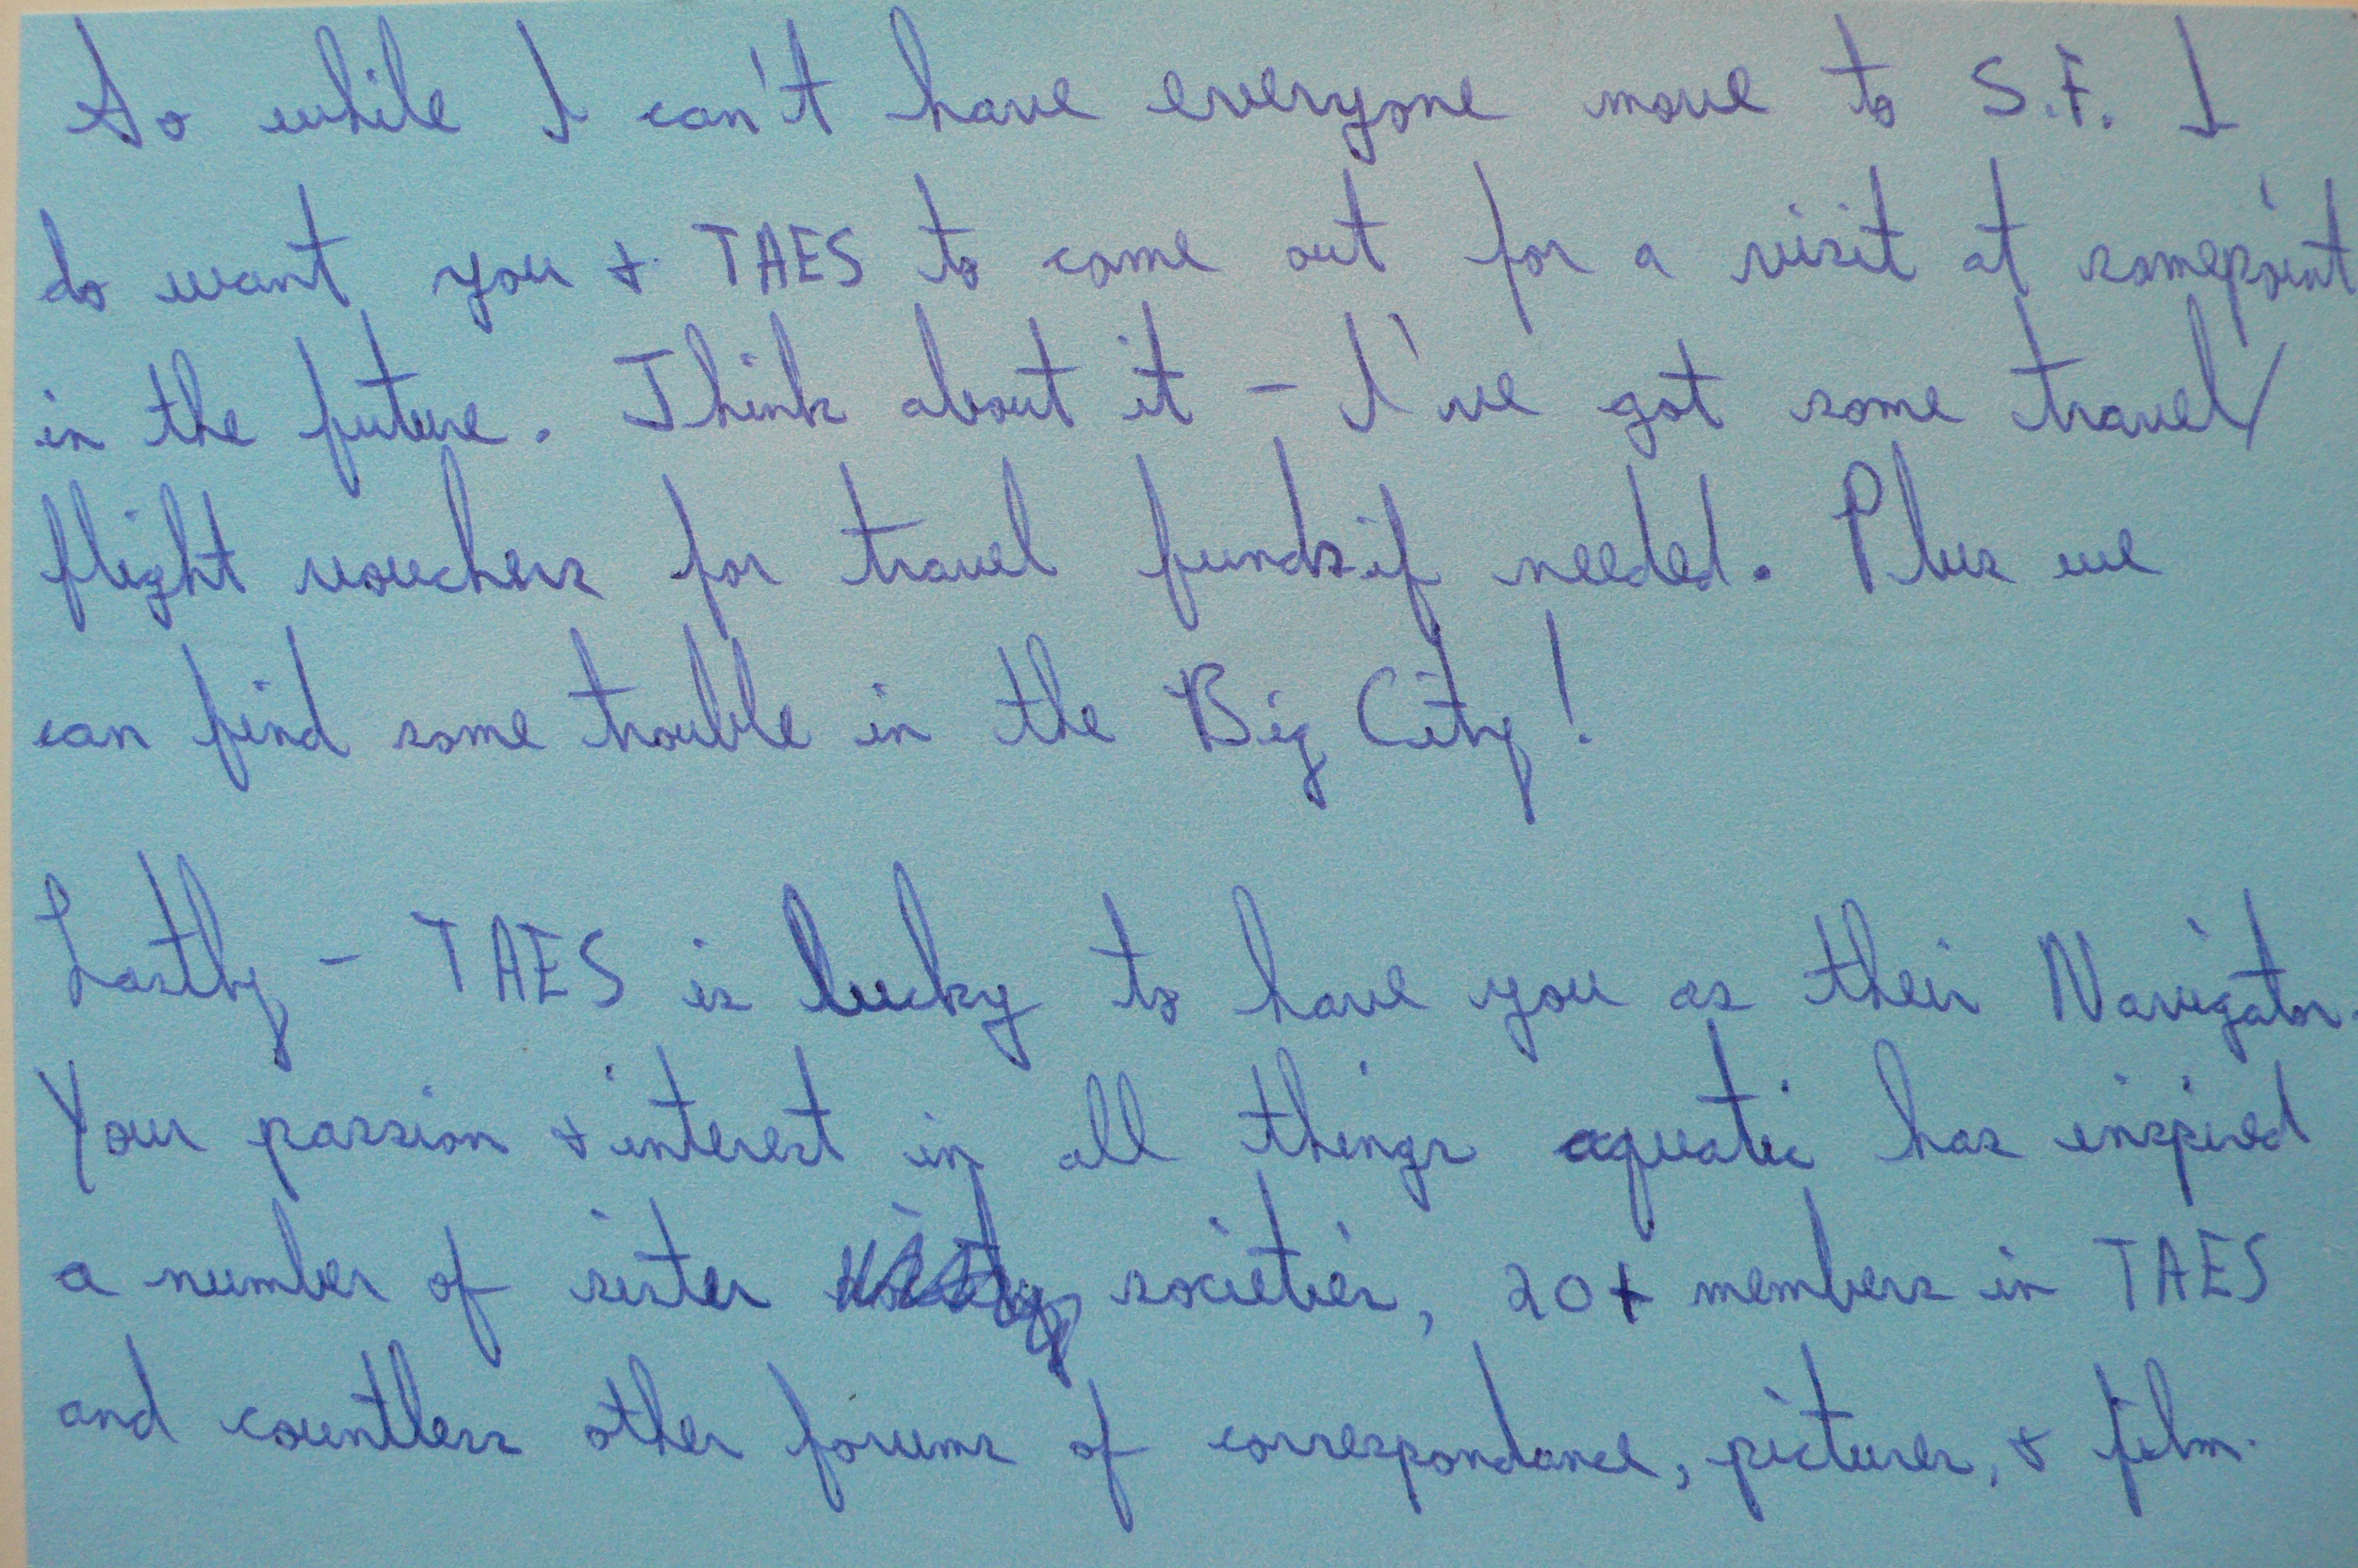 So while I can't have everyone move to S.F. I
do want you & TAES to come out for a visit at somepoint
in the future. Think about it - I've got some travel/
flight vouchers for travel funds if needed. Plus we
can find some trouble in the Big City!
Lastly - TAES is lucky to have you as their Navigator.
Your passion & interest in all things aquatic has inspired
a number of sister societies, 20+ members in TAES
and countless other forums of correspondance, pictures, & film.